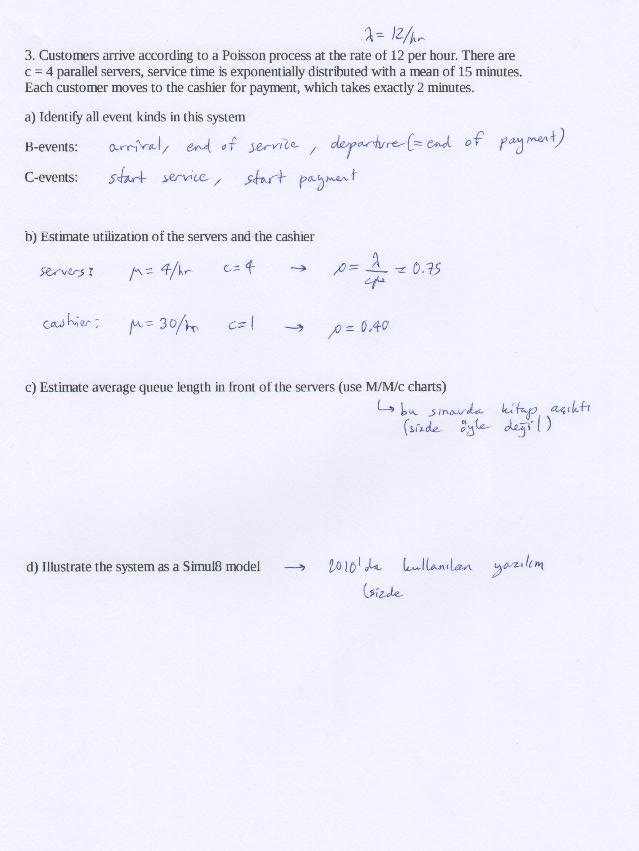 λ = 12/hr
3. Customers arrive according to a Poisson process at the rate of 12 per hour. There are
c = 4 parallel servers, service time is exponentially distributed with a mean of 15 minutes.
Each customer moves to the cashier for payment, which takes exactly 2 minutes.
a) Identify all event kinds in this system
B-events: arrival, end of service, departure (= end of payment)
C-events: start service, start payment
b) Estimate utilization of the servers and the cashier
servers: μ = 4/hr c = 4 → ρ = λ/cμ = 0.75
cashier: μ = 30/hr c = 1 → ρ = 0.40
c) Estimate average queue length in front of the servers (use M/M/c charts)
↳ bu sınavda kitap açıktı
(sizde öyle değil)
d) Illustrate the system as a Simul8 model → 2010'da kullanılan yazılım
(sizde